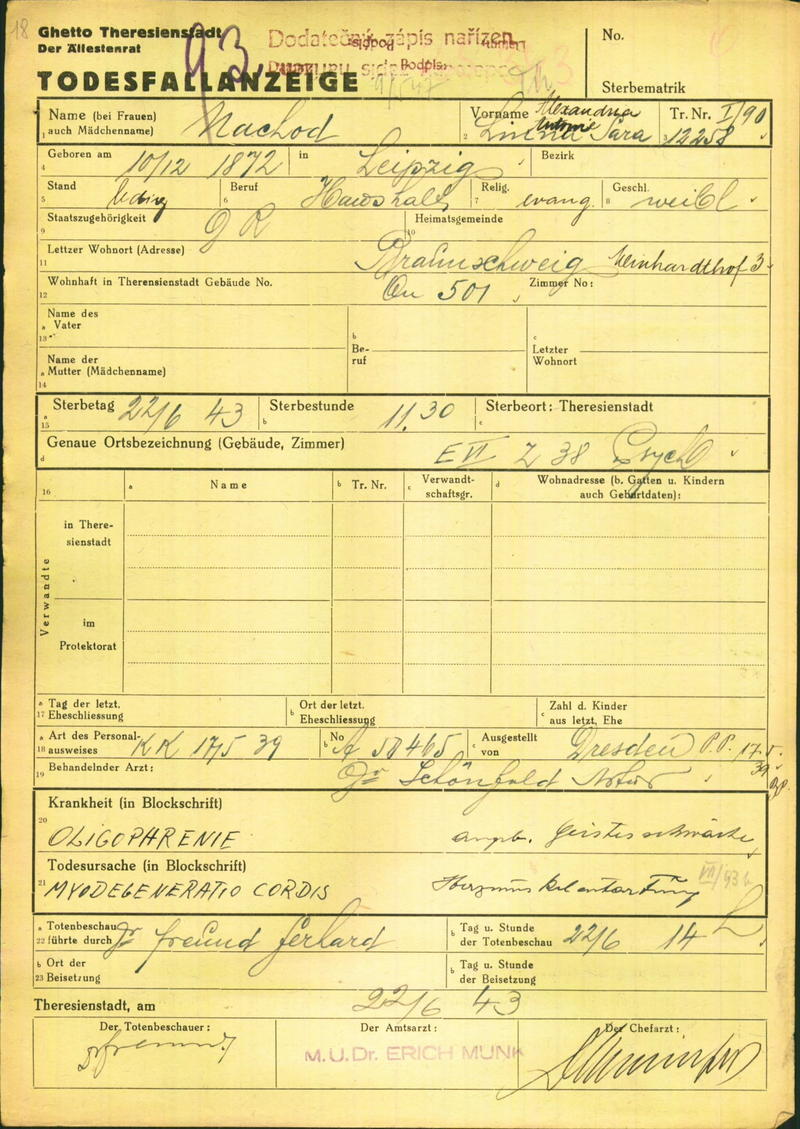 18
Ghetto Theresienstadt
Der Ällestenrat
93.
Dodatečný zápis nařízen
Podpis:
No.
TODESFALLANZEIGE
Sterbematrik
Name (bei Frauen) Nachod Vorname Alexandria Tr. Nr. I/90
1 auch Mädchenname) 2 Sara 3 12258
Geboren am 10/12 1872 in Leipzig Bezirk
4
Stand ledig Beruf Haushalt Relig. evang. Geschl. weibl
5 6 7 8
Staatszugehörigkeit D R Heimatsgemeinde
9 10
Lettzer Wohnort (Adresse) Braunschweig Meinhardthof 3
11
Wohnhaft in Therensienstadt Gebäude No. Qu 501 Zimmer No:
12
Name des
a Vater
13
b
Be-
ruf
c
Letzter
Wohnort
Name der
a Mutter (Mädchenname)
14
a Sterbetag 22/6 43 Sterbestunde 11.30 Sterbeort: Theresienstadt
15 b c
Genaue Ortsbezeichnung (Gebäude, Zimmer) E VI Z 38 Psych
d
16 a Name b Tr. Nr. c Verwandt-schaftsgr. d Wohnadresse (b. Gatten u. Kindern
auch Gebürtdaten):
Verwandte
in There-
sienstadt
im
Protektorat
a Tag der letzt. b Ort der letzt. c Zahl d. Kinder
17 Eheschliessung Eheschliessung aus letzt. Ehe
a Art des Personal- KK 17/5 39 b No A 58465 c Ausgestellt Dresden P.P. 17.5.
18 ausweises von 39
Behandelnder Arzt: Dr Schönfeld Artur
19
Krankheit (in Blockschrift)
20
OLIGOPHRENIE angeb. Geistesschwäche
Todesursache (in Blockschrift)
21
MYODEGENERATIO CORDIS Herzmuskelentartung
a Totenbeschau Dr Freund Gerhard b Tag u. Stunde 22/6 14 h
22 führte durch der Totenbeschau
b Ort der b Tag u. Stunde
23 Beisetzung der Beisetzung
Theresienstadt, am 22/6 43
Der Totenbeschauer: Der Amtsarzt: Der Chefarzt:
M.U.Dr. ERICH MUNK